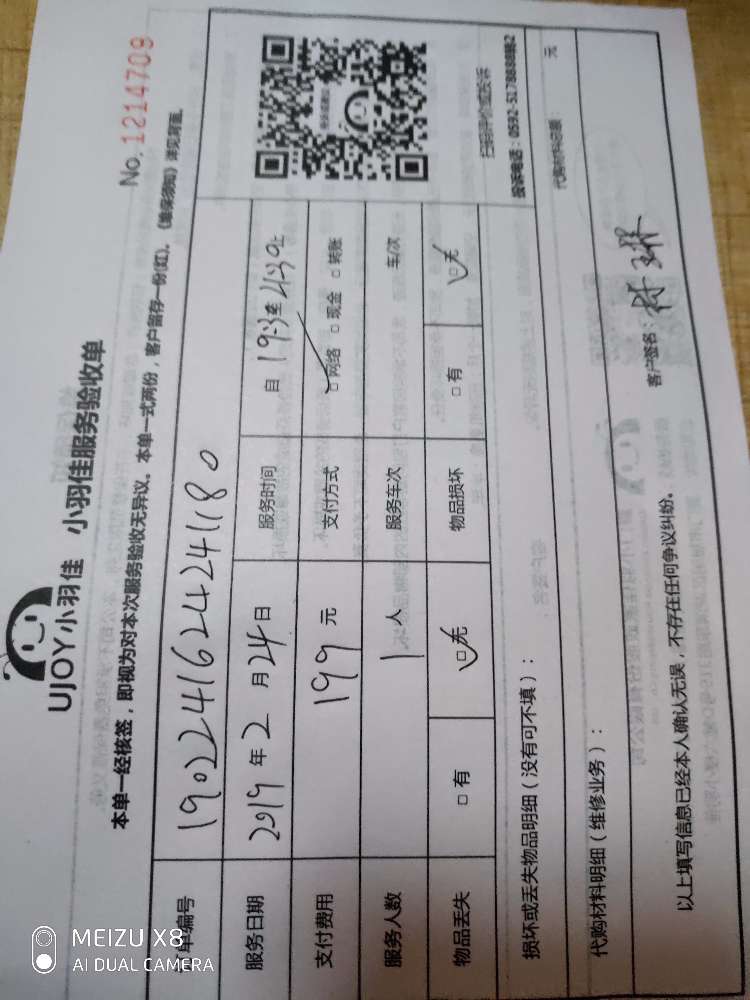 UJOY小羽佳 小羽佳服务验收单
No. 1214709
本单一经核签，即视为对本次服务验收无异议。本单一式两份，客户留存一份(红)。《维保须知》详见背面。
订单编号 190224162424241180
服务日期 2019 年 2 月 24 日 服务时间 自 19:3 至 21:30 止
支付费用 199 元 支付方式 □网络 □现金 □转账
服务人数 1 人 服务车次 车/次
物品丢失 □有 □无 物品损坏 □有 □无
扫码评价或投诉
投诉电话：0592-5178888转2
损坏或丢失物品明细（没有可不填）：
代购材料明细（维修业务）： 代购材料总额： 元
以上填写信息已经本人确认无误，不存在任何争议纠纷。 客户签名：
MEIZU X8
AI DUAL CAMERA